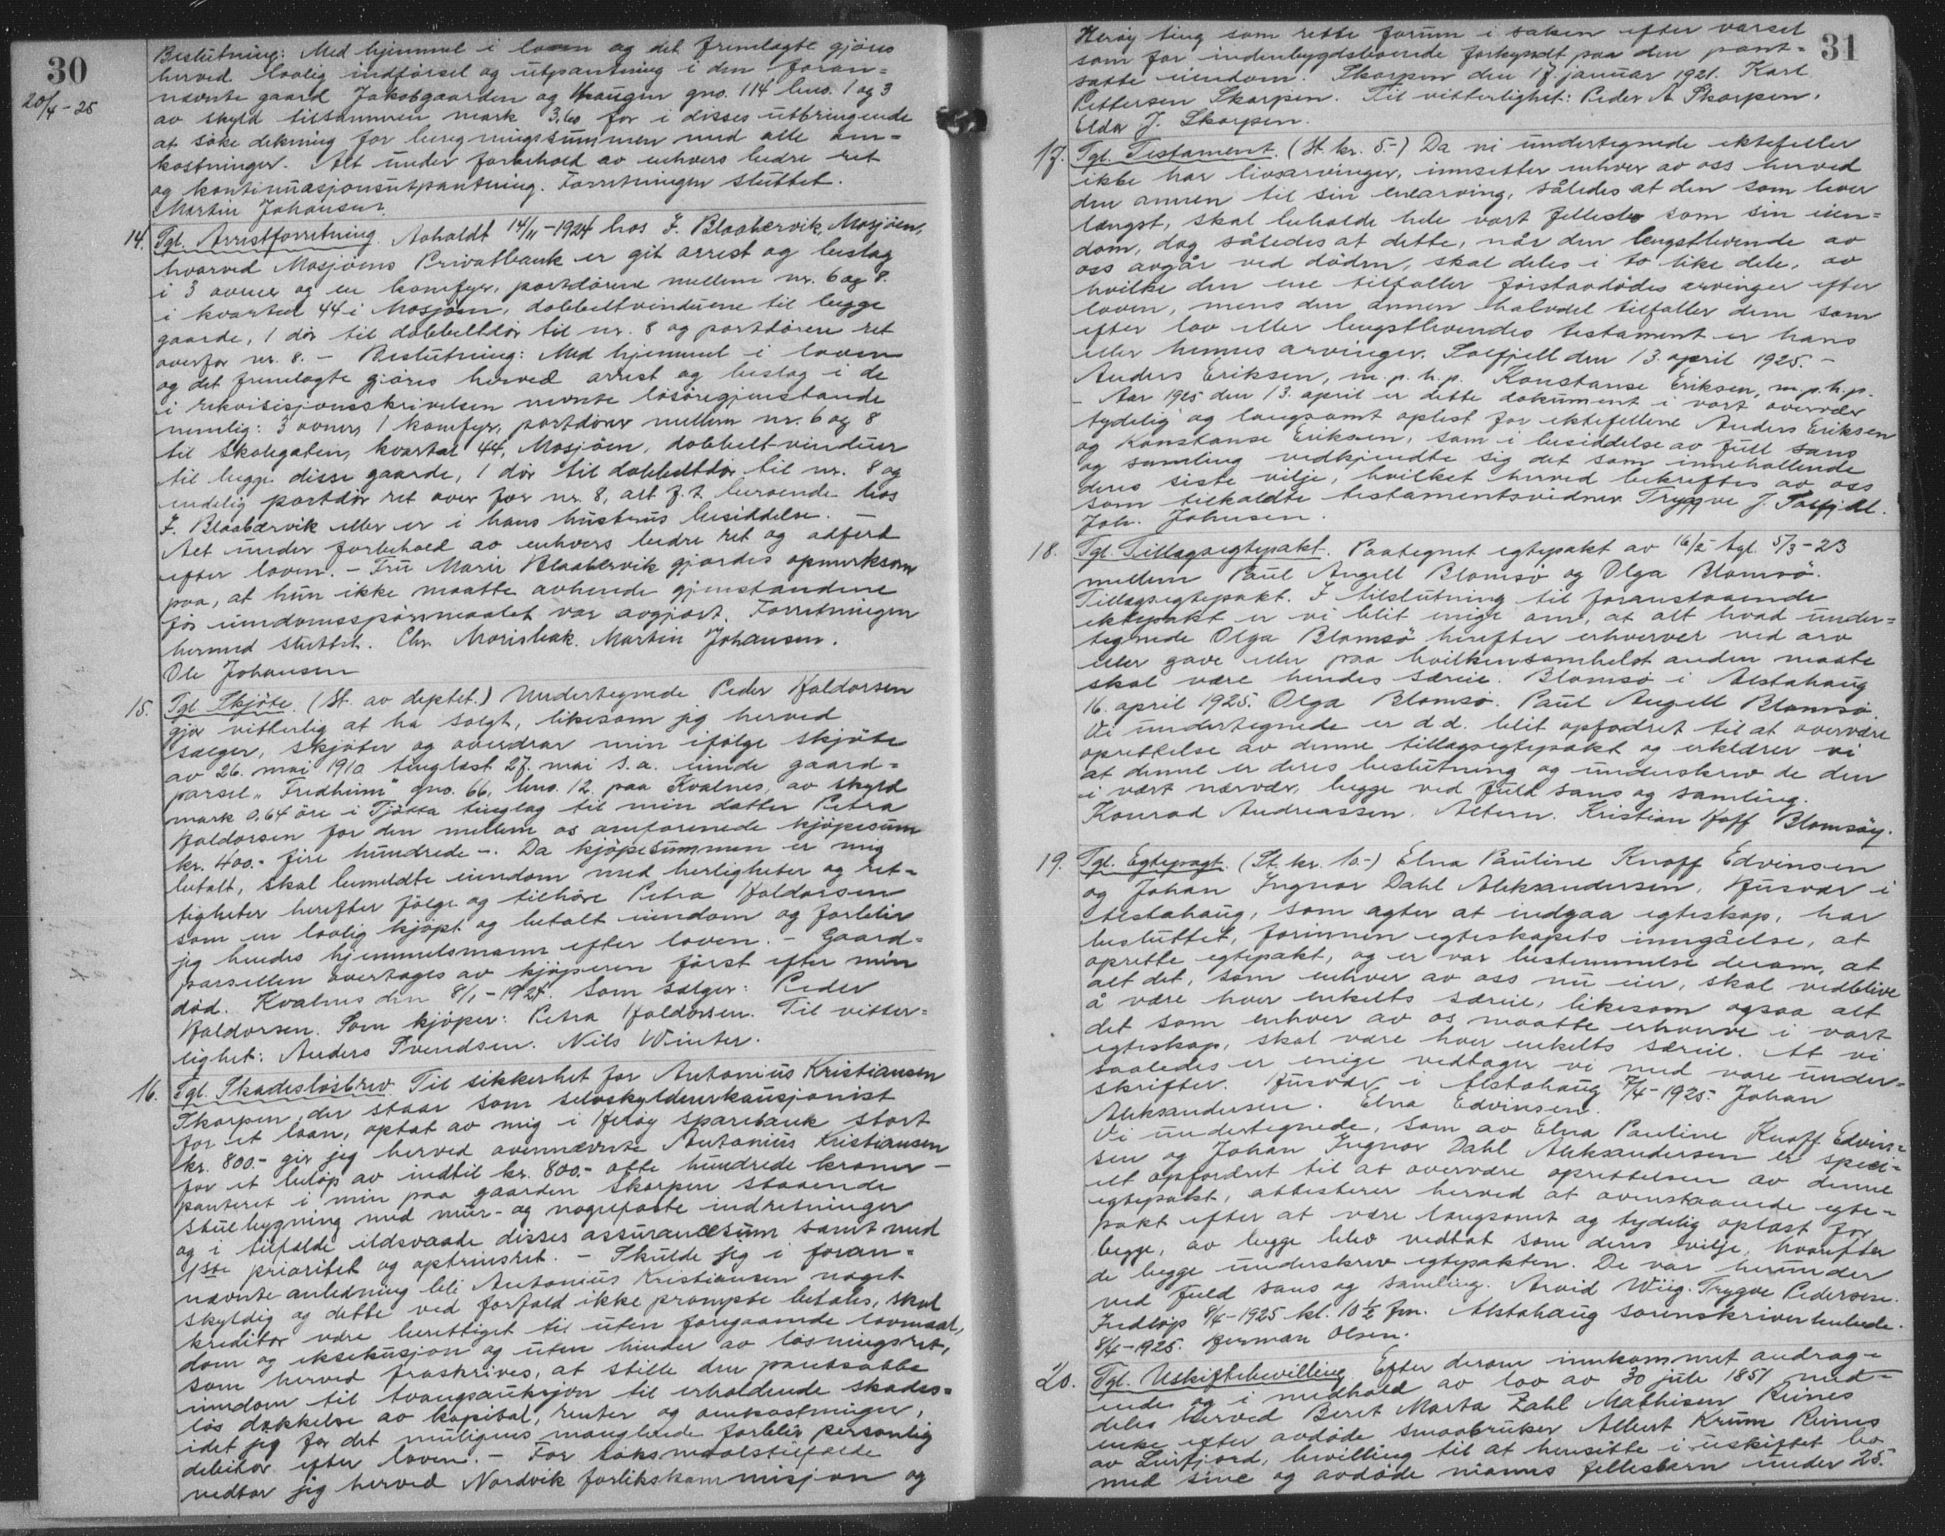 30
20/4-25
Beslutning: Med hjemmel i loven og det fremlagte gjöres
herved lovlig indförsel og utpantning i den foran-
nævnte gaard Jakobgaarden og Haugen gno. 114 bno. 1 og 3
av skyld tilsammen mark 3,60 for i disses utbringende
at söke dekning for beregningssummen med alle om-
kostninger. Alt under forbehold av enhvers bedre ret
og kontinuasjonsutpantning. Forretningen sluttet.
Martin Johansen.
14. Tgl. Arrestforretning. Avholdt 14/11-1924 hos J. Blaabærvik, Mosjöen,
hvorved Mosjöens Privatbank er git arrest og beslag
i 3 ovner og en komfyr, portdörene mellem nr. 6 og 8.
i kvartal 44 i Mosjöen, dobbeltvinduene til begge
gaarde, 1 dör til dobbeltdör til nr. 8 og portdören ret
overfor nr. 8. - Beslutning: Med hjemmel i loven
og det fremlagte gjöres herved arrest og beslag i de
i rekvisisjonsskrivelsen nevnte lösöregjenstande
nemlig: 3 ovner, 1 komfyr, portdörer mellem nr. 6 og 8
til Skolegaten, kvartal 44, Mosjöen, dobbelt-vinduer
til begge disse gaarde, 1 dör til dobbeltdör til nr. 8 og
endelig portdör ret over for nr. 8, alt f. t. beroende hos
J. Blaabærvik eller er i hans hustrus besiddelse. -
Alt under forbehold av enhvers bedre ret og adferd
efter loven. - Fru Marie Blaabervik gjordes opmerksom
paa, at hun ikke maatte avhende gjenstandene
för eiendomsspörsmaalet var avgjort. Forretningen
hermed sluttet. Chr. Morisbak. Martin Johansen.
Ole Johansen
15. Tgl. Skjöte. (St. av deptet.) Undertegnede Peder Haldorsen
gjör vitterlig at ha solgt, likesom jeg herved
sælger, skjöter og overdrar min ifölge skjöte
av 26. mai 1910 tinglæst 27. mai s.a. eiende gaard-
parsel „Fredheim" gno. 66, bno. 12. paa Kvalnes, av skyld
mark 0,64 öre i Tjötta tinglag til min datter Petra
Haldorsen for den mellem os omforenede kjöpesum
kr. 400.- fire hundrede -. Da kjöpesummen er mig
betalt, skal bemeldte eiendom med herligheter og ret-
tigheter herefter fölge og tilhöre Petra Haldorsen
som en lovlig kjöpt og betalt eiendom og forblir
jeg hendes hjemmelsmann efter loven. - Gaard-
parsellen overtages av kjöperen först efter min
död. Kvalnes den 8/1-1924. Som sælger: Peder
Haldorsen. Som kjöper: Petra Haldorsen. Til vitter-
lighet: Anders Svendsen. Nils Winter.
16. Tgl. Skadeslösbrev. Til sikkerhet for Antonius Kristiansen
Skorpen, der staar som selvskyldnerkausjonist
for et laan, optat av mig i Heröy sparebank stort
kr. 800.- gir jeg herved ovennævnte Antonius Kristiansen
for et belöp av indtil kr. 800.- otte hundrede kroner -
panteret i min paa gaarden Skorpen staaende
stuebygning med mur- og nagelfaste indretninger
og i tilfælde ildsvaade disses assurancesum samt med
1ste prioritet og optrinsret. - Skulde jeg i foran-
nævnte anledning bli Antonius Kristiansen noget
skyldig og dette ved forfald ikke prompte betales, skal
kreditor være berettiget til uten foregaaende lovmaal,
dom og eksekusjon og uten hinder av lösningsret,
som herved fraskrives, at stille den pantsatte
eiendom til tvangsauksjon til erholdende skades-
lös dækkelse av kapital, renter og omkostninger,
idet jeg for det muligens manglende forblir personlig
debitor efter loven. - For söksmaalstilfælde
vedtar jeg herved Nordvik forlikskommisjon og
31
Heröy ting som rette forum i saken efter varsel
som for indenbygdsboende forkyndt paa den pant-
satte eiendom. Skorpen den 17. januar 1921. Karl
Pettersen Skorpen. Til vitterlighet: Peder A. Skorpen.
Eldor J. Skorpen.
17. Tgl. Testament. (St. kr. 5-) Da vi undertegnede ektefeller
ikke har livsarvinger, innsetter enhver av oss herved
den annen til sin enearving, således at den som lever
lengst, skal beholde hele vort fellesbo som sin eien-
dom, dog således at dette, når den lengstlevende av
oss avgår ved döden, skal deles i to like dele, av
hvilke den ene tilfaller förstavdödes arvinger efter
loven, mens den annen halvdel tilfaller dem som
efter lov eller lengstlevendes testament er hans
eller hennes arvinger. Solfjell den 13. april 1925. -
Anders Eriksen, m. p. h. p. Konstanse Eriksen, m. p. h. p.
- Aar 1925 den 13. april er dette dokument i vort overvær
tydelig og langsomt oplest for ektefellene Anders Eriksen
og Konstanse Eriksen, som i besiddelse av full sans
og samling vedkjendte sig det som inneholdende
deres siste vilje, hvilket herved bekreftes av oss
som tilkaldte testamentsvidner. Tryggve J. Solfjell.
Joh. Johnsen.
18. Tgl. Tillægsegtepakt. Paategnet egtepakt av 16/2 tgl. 5/3-23
mellem Paul Angell Blomsö og Olga Blomsö.
Tillægsegtepakt. I tilslutning til foranstaaende
ektepakt er vi blit enige om, at alt hvad under-
tegnede Olga Blomsö herefter erhverver ved arv
eller gave eller paa hvilkensomhelst anden maate
skal være hendes særeie. Blomsö i Alstahaug
16. april 1925. Olga Blomsö. Paul Angell Blomsö.
Vi undertegnede er d.d. blit opfodret til at overvære
oprettelse av denne tillægsegtepakt og erklærer vi
at denne er deres beslutning og underskrev de den
i vært nærvær, begge ved fuld sans og samling.
Konrad Andreassen. Altern. Kristian Hoff Blomsöy.
19. Tgl. Egtepagt. (St. kr. 10-) Elna Pauline Knoff Edvinsen
og Johan Ingvar Dahl Aleksandersen, Husvær i
Alstahaug, som agter at indgaa egteskap, har
besluttet, forinnen egteskapets inngåelse, at
oprette egtepakt, og er vor bestemmelse derom, at
alt det, som enhver av oss nu eier, skal vedblive
å være hver enkelts særeie, likesom ogsaa alt
det som enhver av os maatte erhverve i vort
egteskap, skal være hver enkelts særeie. At vi
saaledes er enige vedtager vi med vore under-
skrifter. Husvær i Alstahaug 7/4-1925. Johan
Aleksandersen. Elna Edvinsen.
Vi undertegnede, som av Elna Pauline Knoff Edvin-
sen og Johan Ingvar Dahl Aleksandersen er speci-
elt opfordret til at overvære oprettelsen av denne
egtepakt, attesterer herved at ovenstaaende egte-
pakt efter at være langsomt og tydelig oplæst for
begge, av begge blev vedtat som deres vilje, hvorefter
de begge underskrev egtepakten. De var herunder
ved fuld sans og samling. Arvid Wiig. Trygve Pedersen.
Indlöp 8/4-1925 kl. 10 1/2 fm. Alstahaug sorenskriverembede.
8/4-1925. Herman Olsen.
20. Tgl. Uskiftebevilling. Efter derom innkommet andrag-
ende og i medhold av lov av 30 juli 1851 med-
deles herved Beret Marta Zahl Mathisen Reines
enke efter avdöde smaabruker Albert Krum Reines
av Leirfjord, bevilling til at hensitte i uskiftet bo
med sine og avdöde manns fellesbarn under 25.